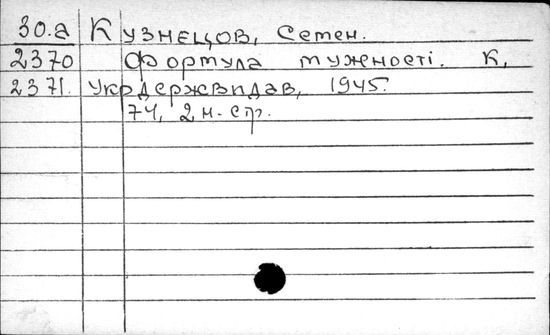 30.а Кузнецов, Семен.
2370 Формула мужності. К,
2371. Укрдержвидав, 1945.
74, 2 н. стр.